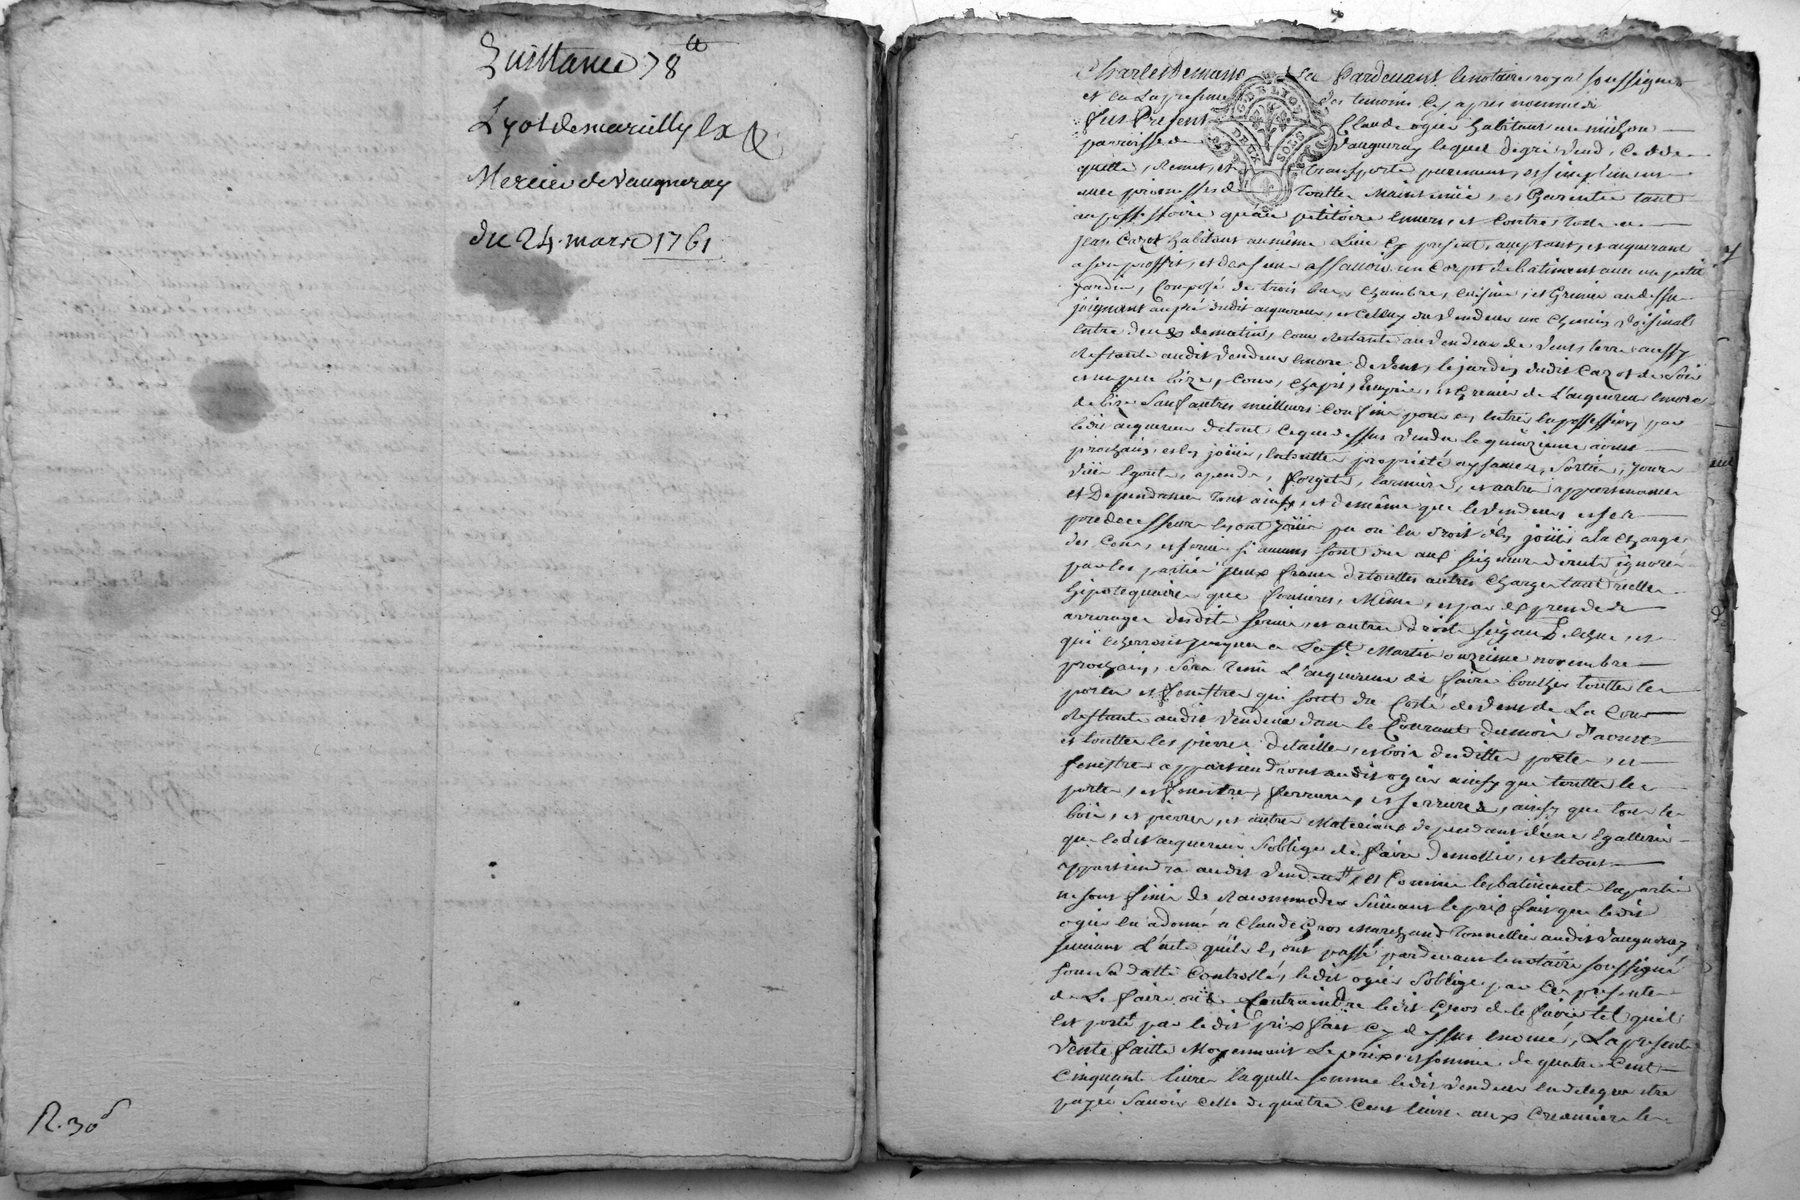 Quittance 78tt
Lyot de marcilly
Mercier de Vaugneray
du 24. mars 1761
R. 30s
Pardevant le notaire royal soussigné
et en la presence des temoins cy apres nommés
fut Present Claude ogier habitant
parroisse de Vaugneray lequel de gré vend, cedde
quitte, Remet, et transporte purement, et simplement
avec promesses de toutte Maintenüe, et Garentie tant
au possessoire qu'au petitoire Envers, et Contre Tous a
jean Cazot habitant au même Lieu cy present, acceptant, et acquerant
a son proffit, assavoir un Corps de batiment avec un petit
jardin, Composé de trois bas, chambre, cuisine, et Grenier au dessus
joignant au pré dudit acquereur, et celluy du Vendeur un chemin Voisinal
entre deux de matin, cour Restante au Vendeur de Vent, terre aussy
Restante audit Vendeur encore de Vent, le jardin dudit Cazot de Soir
et un peu bize, Cour, chapit, Ecurie, et Grenier de l'acquereur encore
de bize Sauf autres meilleurs Confins pour en entrer en possession par
ledit acquereur de tout ce que dessus vendu le quinzieme aoust
prochain, et en joüir, en toutte proprieté aysances, Sorties, jours
Vüe Egout, forget, larmier, et autres appartenances
et Dependances tout ainsy, et de même que le Vendeur et ses
predecesseurs en ont joüi pu ou eu droit d'en joüir a la charge
des Cens, et servis si aucuns sont dus aux seigneurs directs ignorés
par les parties jceux franc de touttes autres charges tant reelles
hipotequaires que foncieres, Même, et par exprès des
arrerages desdits servis, et autres droits seigneuriaux echus, et
qui echerront jusques a La St. Martin onzieme novembre
prochain, sera tenu L'acquereur de faire boucher touttes les
portes et fenestres qui sont du Costé de Vent de La Cour
Restante audit Vendeur dans le Courant du mois d'aoust
et touttes les pierres de tailles, et bois desdittes portes, et
fenestres appartiendront audit ogier ainsy que touttes les
portes, et fenestres, ferrures, et serrures, ainsy que tous les
bois, et pierres, et autres Materiaux dependants d'une Egallerie
que ledit acquereur s'oblige de faire Demollir, et le tout
appartiendra audit Vendeur, et Comme les batiments en partie
ne sont finis de Racommoder Suivant le prix fait que ledit
ogier en a donné a Claude Gros Marchand Tonnellier audit Vaugneray
suivant L'acte qu'ils en ont passé pardevant le notaire soussigné
sous sa datte Controllé, ledit ogier s'oblige par Ces presentes
de Le faire ou Contraindre ledit Gros de le faire tel qu'il
est porté par le dit prix fait cy dessus enoncé, La presente
Vente faitte Moyennant Le prix et somme de quatre Cent
Cinquante livres laquelle somme ledit Vendeur en delegue etre
payée Sauoir celle de quatre Cent livres aux Creanciers